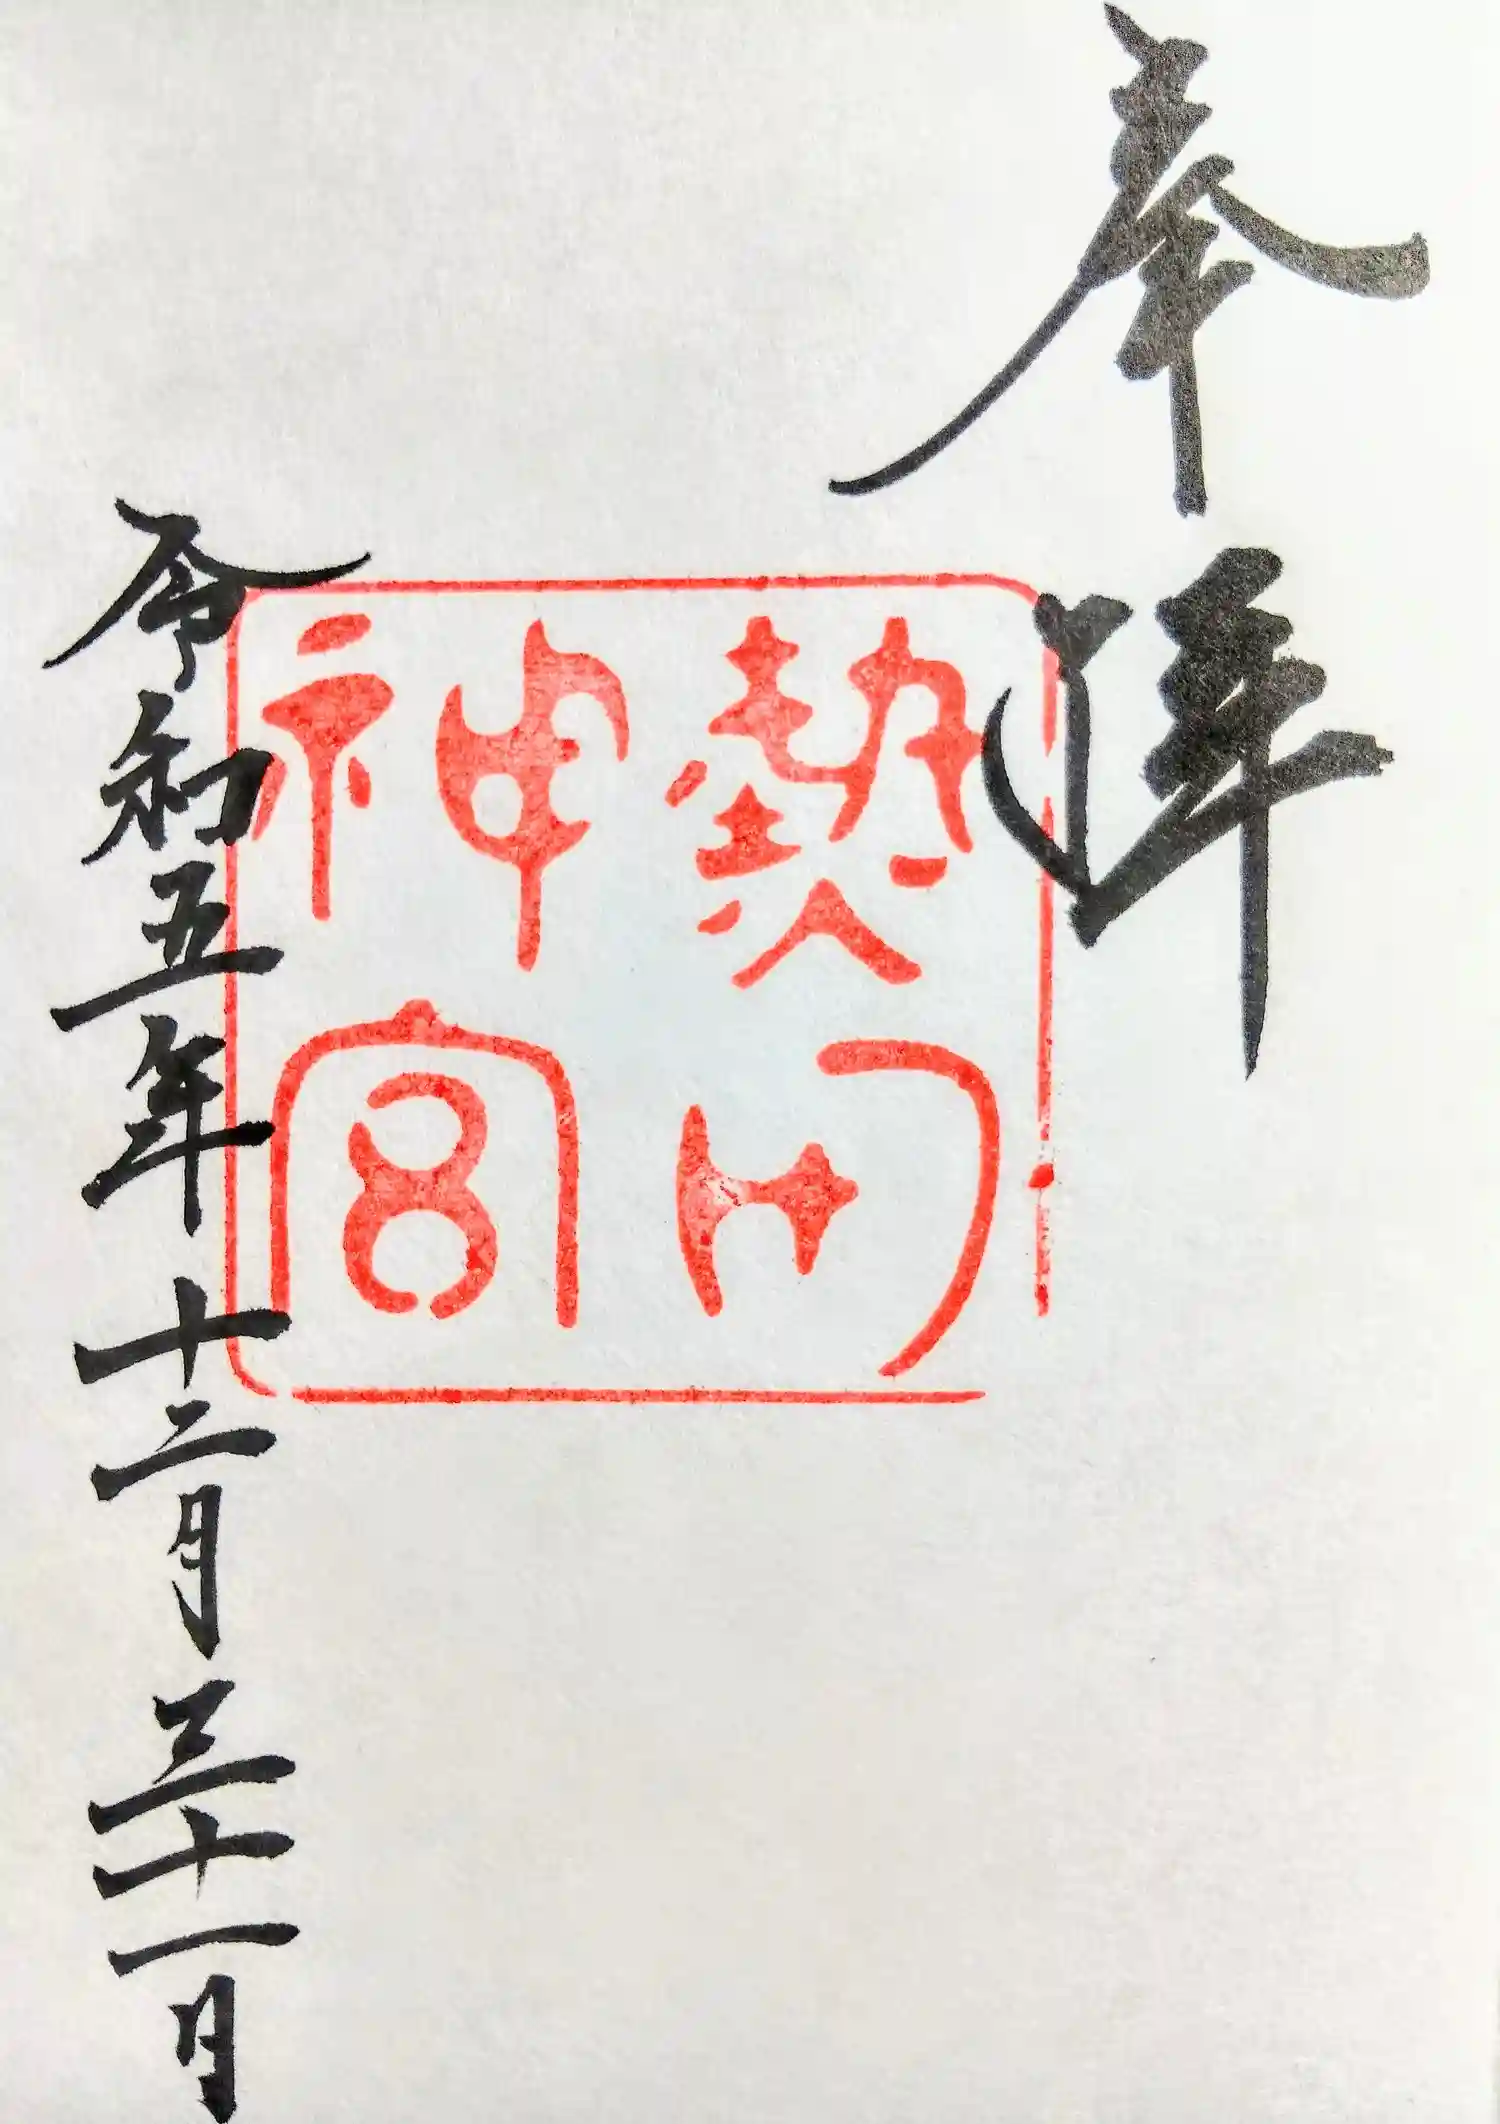 奉拝
熱田
神宮
令和五年十二月三十一日